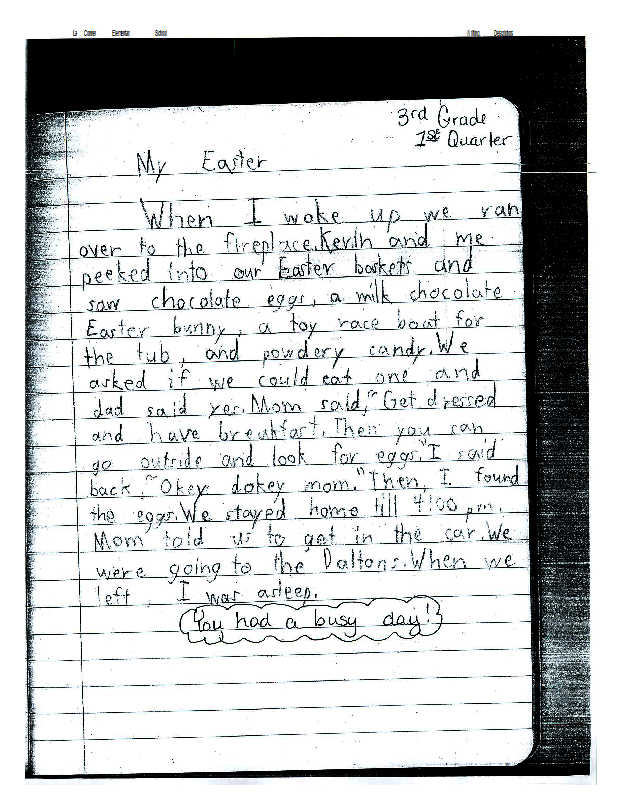 La Conner Elementary School Writing Descriptors
3rd Grade
1st Quarter
My Easter
When I woke up we ran
over to the fireplace. Kevin and me
peeked into our Easter baskets and
saw chocolate eggs, a milk chocolate
Easter bunny, a toy race boat for
the tub, and powdery candy. We
asked if we could eat one and
dad said yes. Mom said, "Get dressed
and have breakfast. Then you can
go outside and look for eggs." I said
back, "Okey dokey mom." Then, I found
the eggs. We stayed home till 4:00 pm.
Mom told us to get in the car. We
were going to the Daltons. When we
left, I was asleep.
You had a busy day!